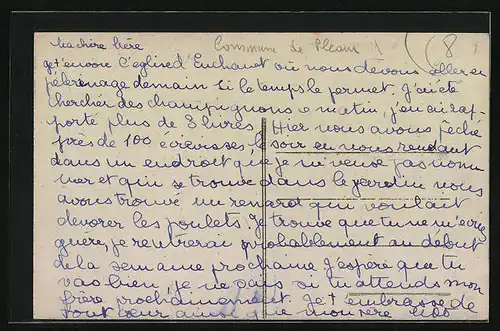 Ma chère Mère Commune de Pleaux 8
Je t'envoie l'église d'Enchanet où nous devons aller en
pèlerinage demain si le temps le permet. J'ai été
chercher des champignons ce matin, j'en ai rap-
porté plus de 8 livres. Hier nous avons pêché
près de 100 écrevisses, le soir en nous rendant
dans un endroit que je ne veux pas nom
mer et qui se trouve dans le jardin nous
avons trouvé un renard qui voulait
dévorer les poulets. Je trouve que tu ne m'écris
guère, je rentrerai probablement au début
de la semaine prochaine j'espère que tu
vas bien, je ne sais si tu attends mon
frère prochainement. Je t'embrasse de
tout cœur ainsi que mon père